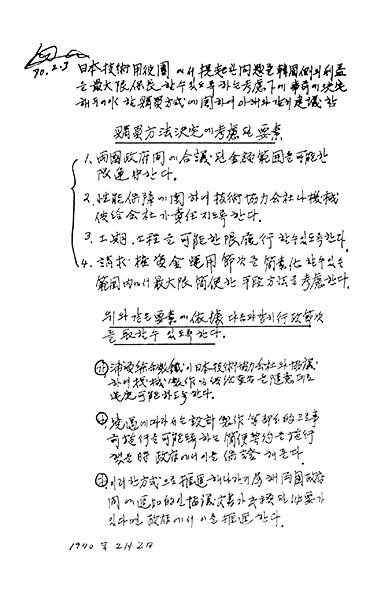 70. 2. 3
日本技術用役團에서 提起한 問題를 韓國側의 利益
을 最大限 保長할 수 있도록 하는 考慮下에 事前에 決定
해두어야 할 購買方式에 関하여 아래와 같이 建議함
購買方法決定에 考慮된 要素
1. 両國政府間에 合議된 金額範囲를 可能한
限 適用한다.
2. 性能保障에 関하여 技術協力会社나 機械
供給会社가 責任지도록 한다.
3. 工期, 工程을 可能한 限 履行할 수 있도록 한다.
4. 請求権資金 運用節次를 簡素化할 수 있는
範囲内에서 最大限 簡便한 手段方法을 考慮한다.
위와 같은 要素에 依據 다음과 같이 行政節次
를 取할 수 있도록 한다.
㉮ 浦項綜合製鐵이 日本技術協力会社와 協議
하여 機械製作 및 供給業者를 随意대로
選定 可能하도록 한다.
㉯ 境遇에 따라서는 設計 製作 等 部分的으로 事
前施行을 可能토록 하는 簡便契約을 施行
했을 時 政府에서 이를 保證해 준다.
㉰ 이러한 方式으로 推進해 나가기 為해 両國政府
間에 追加的인 協議文書가 必要할
있다면 政府에서 이를 推進한다.
1970年 2月 2日